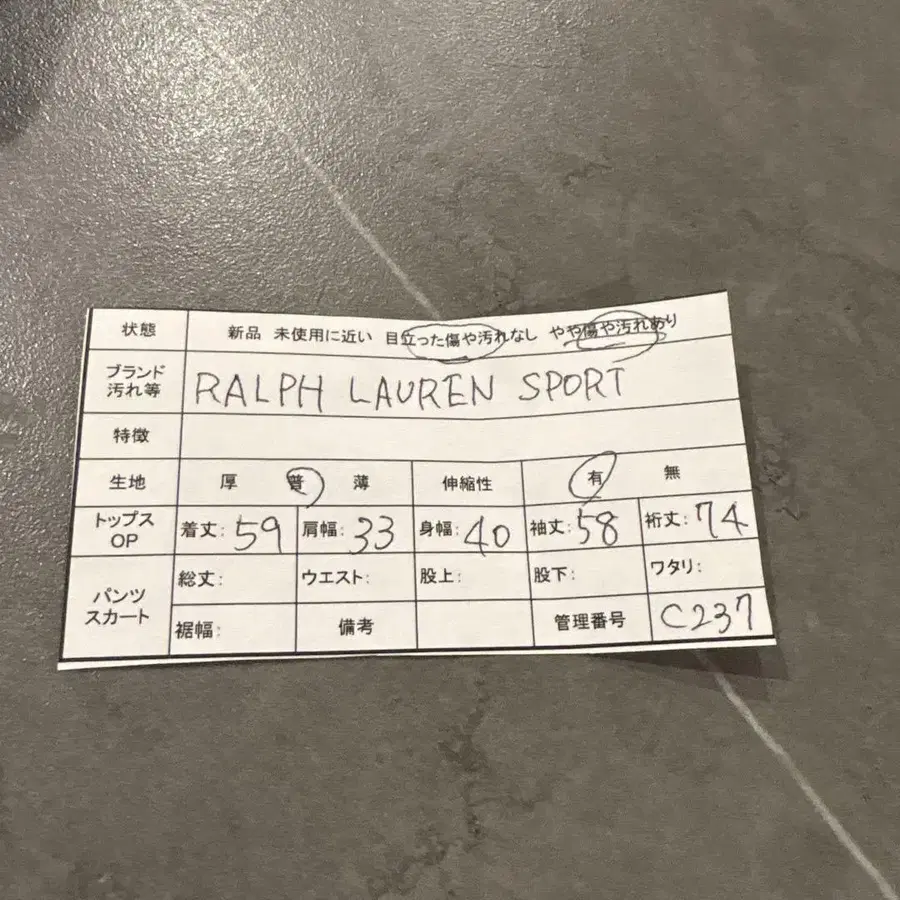 状態 新品 未使用に近い 目立った傷や汚れなし やや傷や汚れあり
ブランド
汚れ等
RALPH LAUREN SPORT
特徴
生地 厚 普 薄 伸縮性 有 無
トップス
OP
着丈: 59 肩幅: 33 身幅: 40 袖丈: 58 裄丈: 74
パンツ
スカート
総丈: ウエスト: 股上: 股下: ワタリ:
裾幅: 備考 管理番号 C237